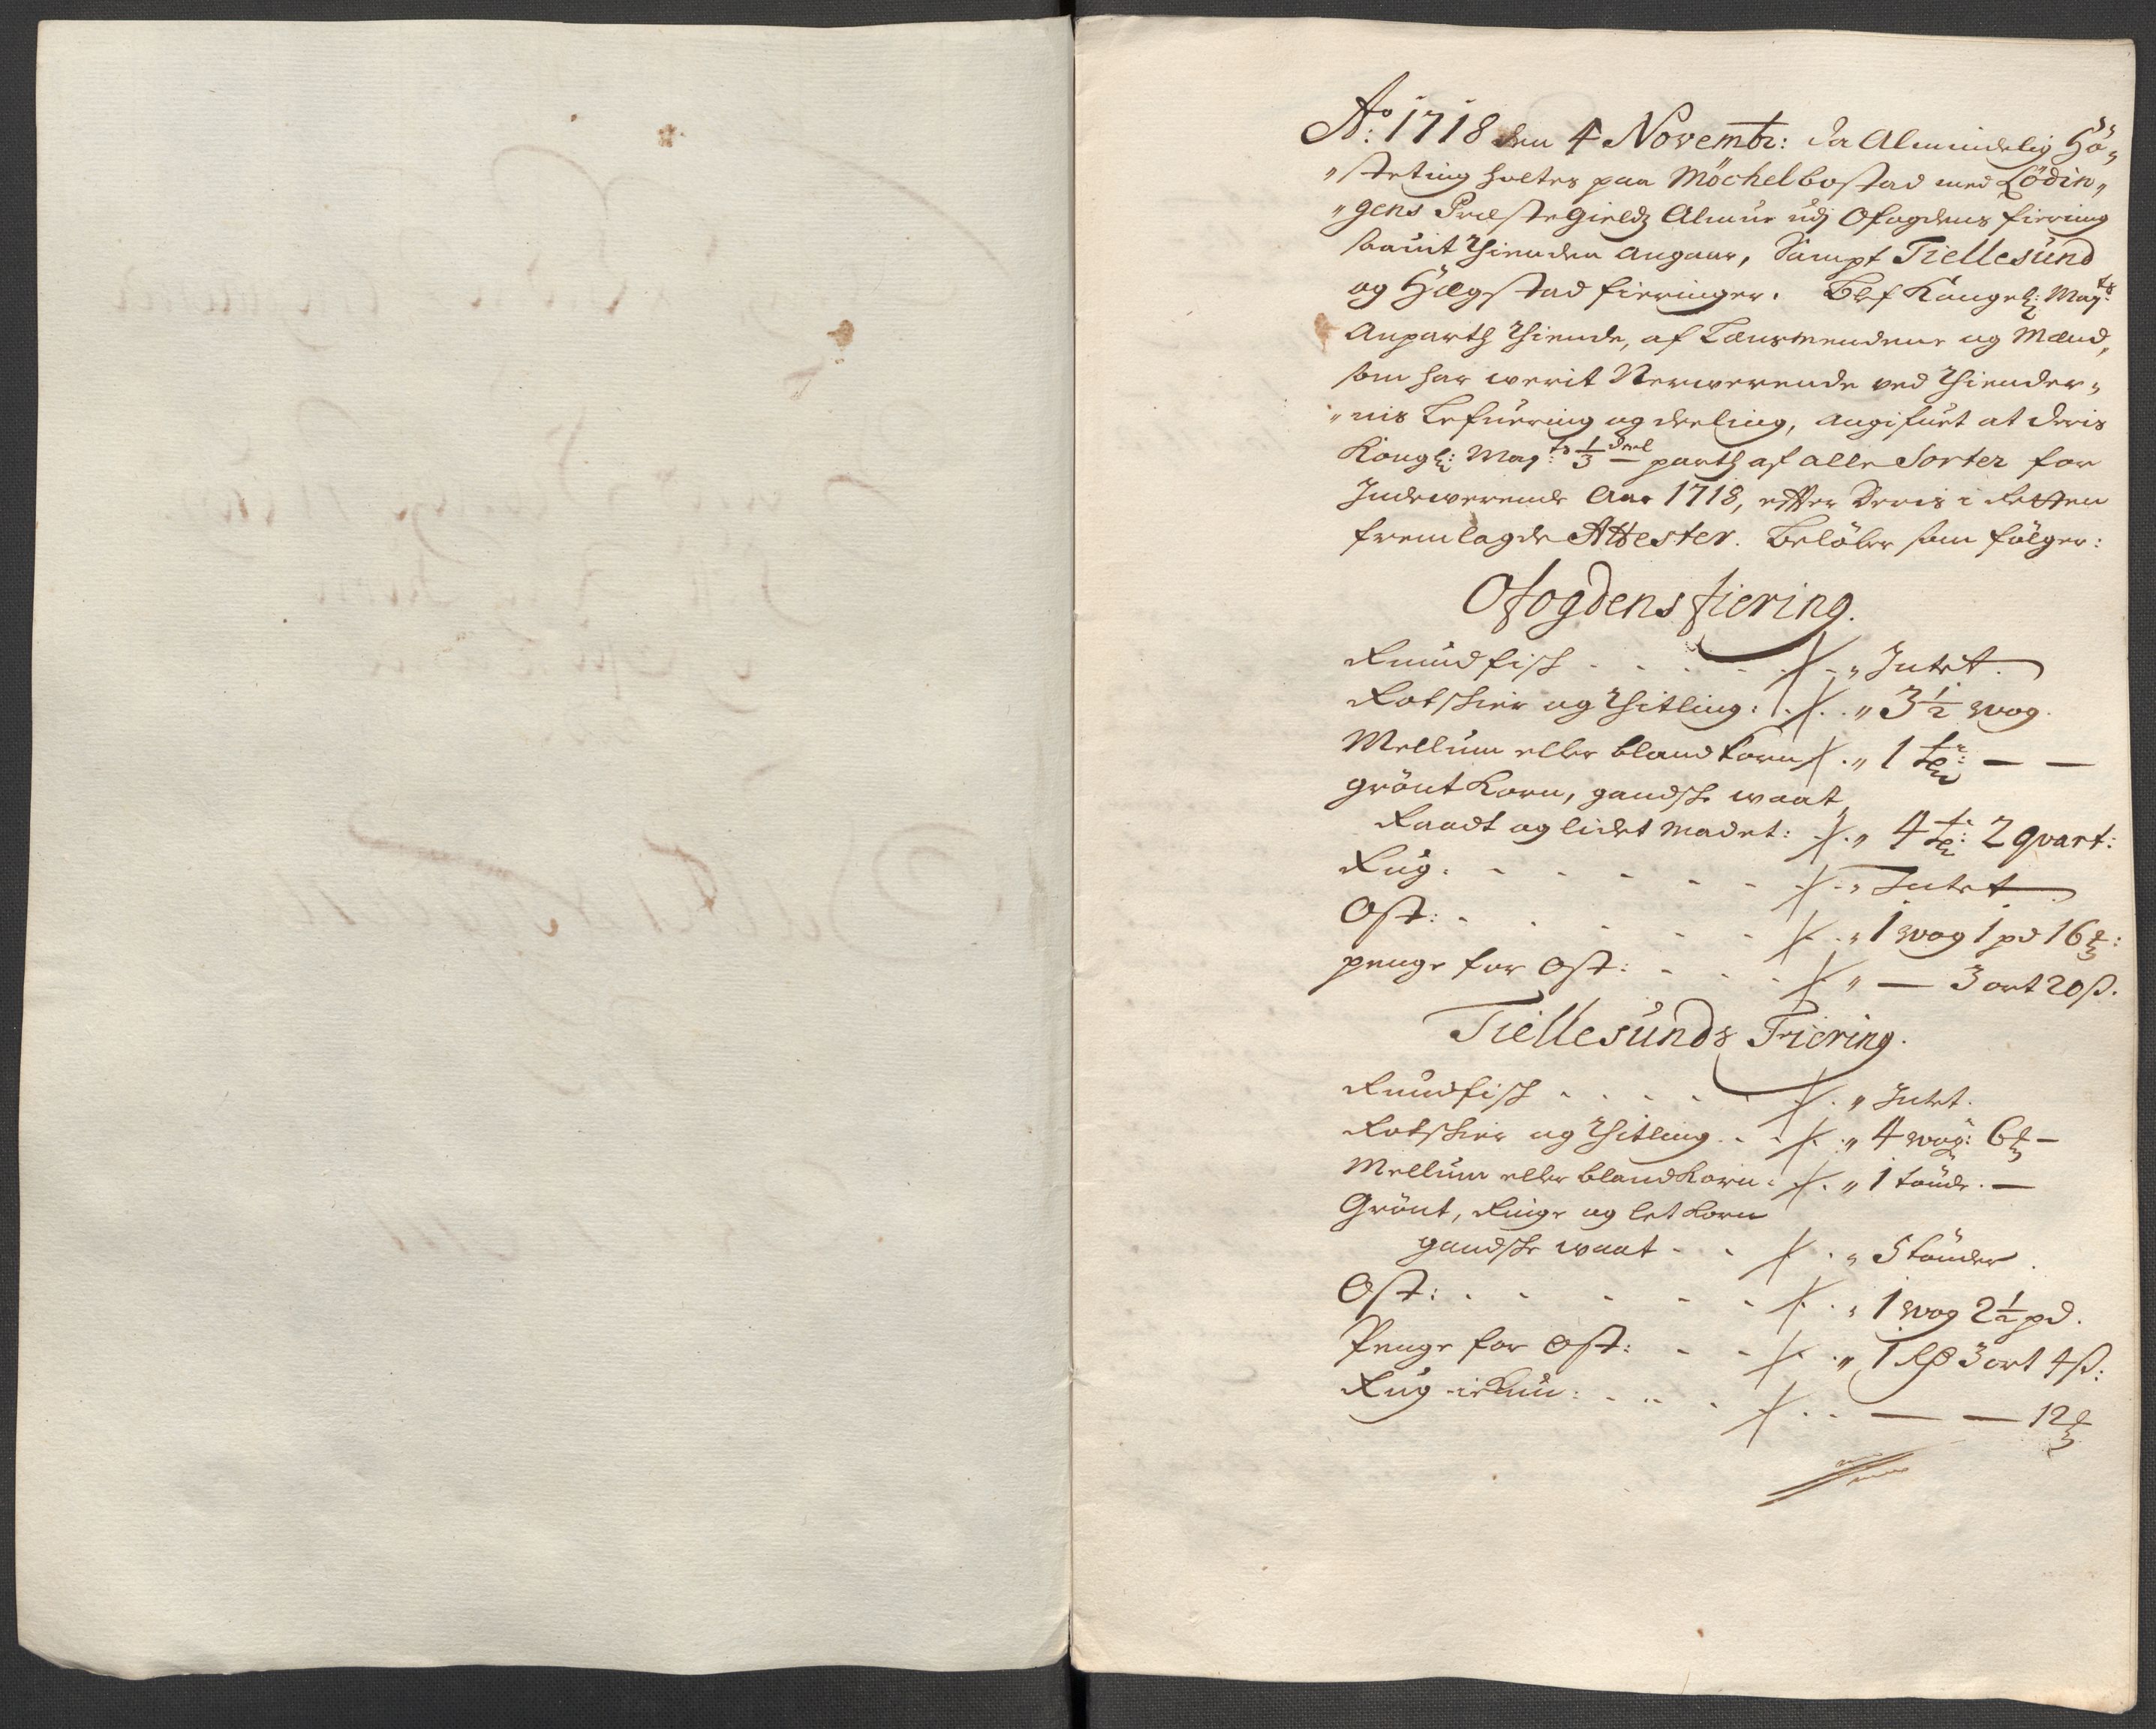 Ao: 1718 den 4 Novembr: da Almindelig Hö„
„steting holtes paa Möchelbostad med Lödin„
„gens Præstegieldz Almue udj Ofogdens fiering
saauit Thienden angaar, Sampt Tiellesund
og Hægstad fieringer. Blef Kongel: Mayts
Anparth Thiende, af Lænsmendene og Mænd,
som har werit Nerwerende ved Thiender„
„nis Lefuering og deeling, angifuet at deris
Kongl: Mayts 1/3 deel parth af alle Sorter for
Indewerende Aar 1718, effter deris i Retten
fremlagde Attester. Belöber som fölger:
Ofogdens fiering.
Rundfish . . . . . „ Intet.
Rotskier og Thitling: . . „ 3 1/2 wog.
Mellum eller bland Korn . „ 1 tr: — —
grönt Korn, gandske waat,
Raadt og lidet Madet: . „ 4 tr: 2 qvart:
Rug. . . . . . . „ Intet
Ost: . . . . . . „ 1 wog 1 pd 16 ℔:
penge for Ost: . . . „ — 3 ort 20 ß.
Tiellesunds Fiering.
Rundfish . . . . . „ Intet.
Rotskier og Thitling . . „ 4 wog: 6 ℔ —
Mellum eller bland Korn: . „ 1 tönde. —
Grönt, Ringe og let Korn
gandske waat . . . „ 5 tönder.
Ost: . . . . . . „ 1 wog 2 1/2 pd.
Penge for Ost: . . . „ 1 Rd 3 ort 4 ß:
Rug ickun: . . . . — — 12 ℔